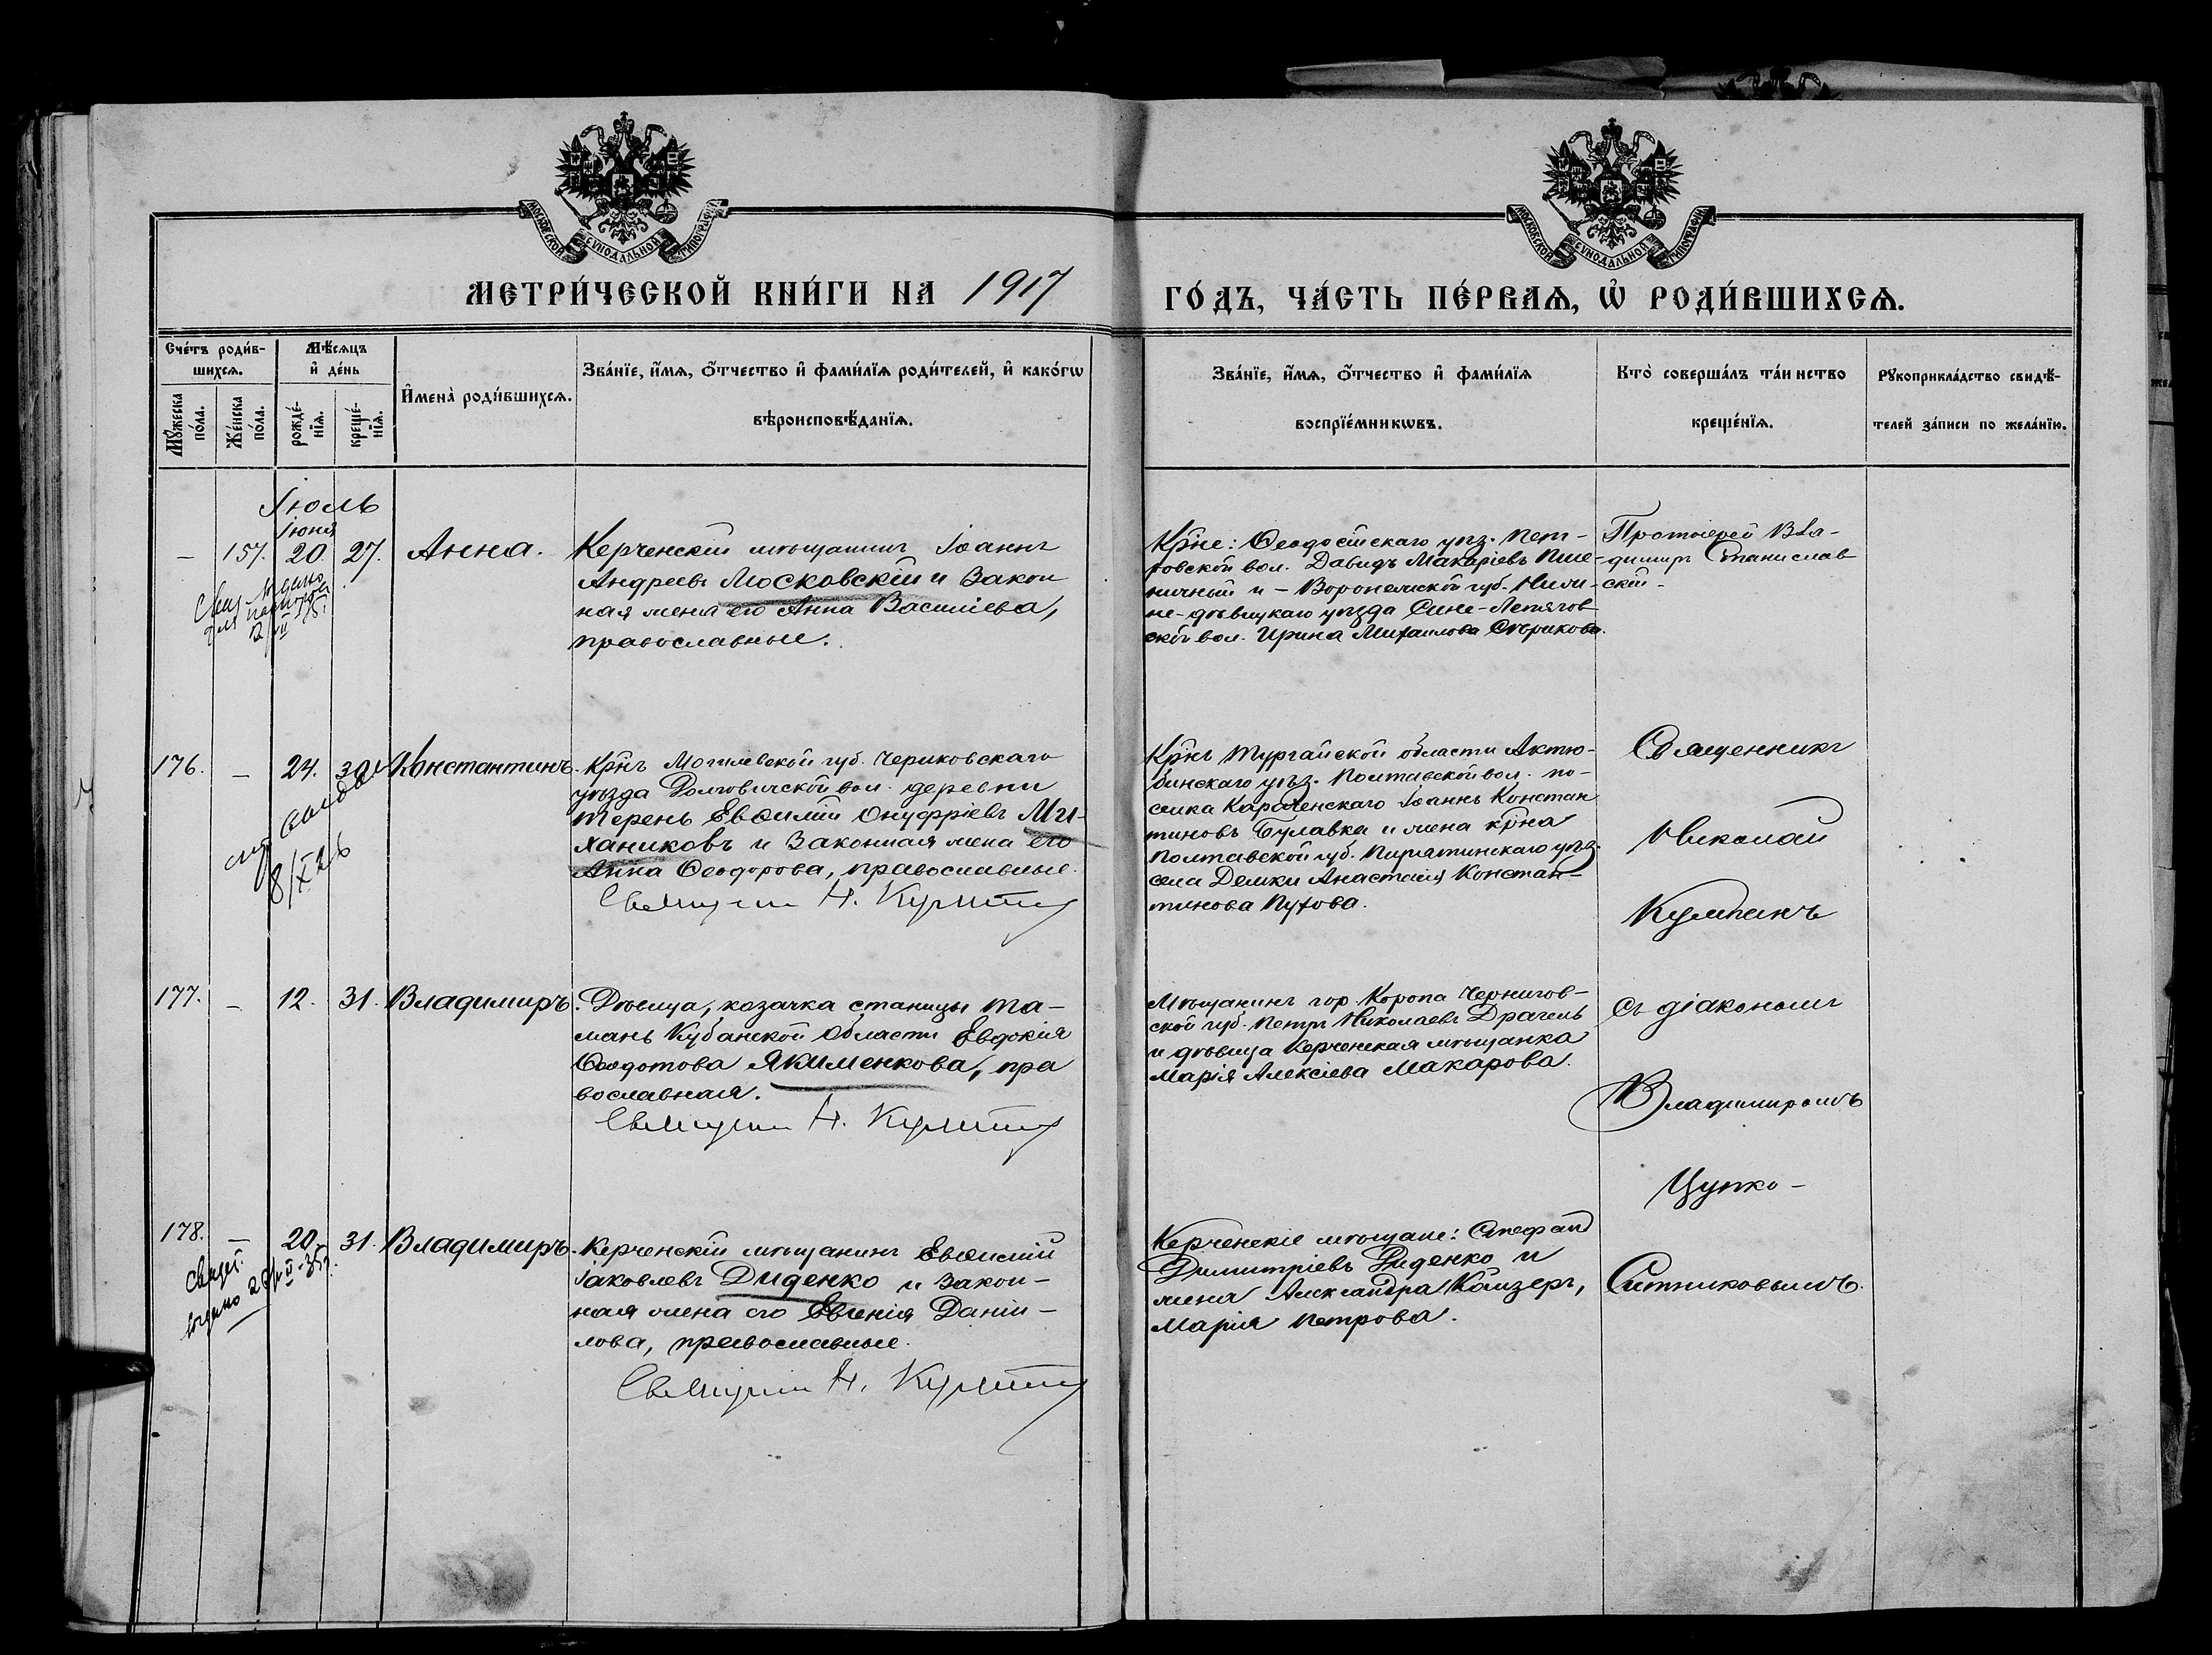 МОСКОВСКОЙ СѴНОДАЛЬНОЙ ТИПОГРАФІИ
МОСКОВСКОЙ СѴНОДАЛЬНОЙ ТИПОГРАФІИ
МЕТРИ́ЧЕСКОЙ КНИ́ГИ НА 1917
ГО́ДЪ, ЧА́СТЬ ПЕ́РВАѦ, Ѡ҆ РОДИ́ВШИХСѦ.
Сче́тъ роди́в-
шихсѧ.
Мꙋ́жеска по́ла.
Же́нска по́ла.
Мѣ́сѧцъ
и҆ де́нь
рожде́-
нїѧ.
креще́-
нїѧ.
И҆мена̀ роди́вшихсѧ.
Зва́нїе, и҆́мѧ, ѻ҆́тчество и҆ фами́лїѧ роди́телей, и҆ како́гѡ
вѣроисповѣ́данїѧ.
Зва́нїе, и҆́мѧ, ѻ҆́тчество и҆ фами́лїѧ
воспрїе́мникѡвъ.
Кто̀ соверша́лъ та́инство
креще́нїѧ.
Рꙋкоприкла́дство свидѣ́-
телей за́писи по жела́нїю.
Іюль
Іюня
— 157. 20. 27. Анна.
Керченскій мѣщанинъ Іоаннъ
Андреевъ Московскій и закон
ная жена его Анна Василіева,
православные.
Крне: Ѳеодосійскаго уѣз. Пет-
ровской вол. Давидъ Макаріевъ Пше-
ничный и - Воронежской губ. Ниж-
не-дѣвицкаго уѣзда Сине-Лепягов-
ской вол. Ирина Михаилова
Протоіерей Вла-
димиръ Станислав
скій.
176. — 24. 30. Константинъ.
8/X 26
Крнъ Могилевской губ. Чериковскаго
уѣзда Долговичской вол. деревни
Терень Евѳимій Онуфріевъ Ми-
ханиковъ и законная жена его
Анна Ѳеодорова, православные.
Крнъ Тургайской области Актю-
бинскаго уѣз. Полтавской вол. по-
селка Іоаннъ Констан
тиновъ Булавка и жена крна
Полтавской губ. Пирятинскаго уѣз.
села Демки Анастасія Констан-
тинова Пухова.
Священникъ
Николай
177. — 12. 31. Владимиръ.
Дѣвица, козачка станицы Та-
мань Кубанской области Евдокія
Ѳеодотова Якименкова, пра
вославная.
Мѣщанинъ гор. Коропа Чернигов-
ской губ. Петръ Николаевъ Драгель
и дѣвица Керченская мѣщанка
Марія Алексіева Макарова.
съ діакономъ
Владимиромъ
Цупко-
178. — 20. 31. Владимиръ.
Керченскій мѣщанинъ Евѳимій
Іаковлевъ Диденко и закон-
ная жена его Евгенія Даніи-
лова, православные.
Керченскіе мѣщане: Стефанъ
Димитріевъ Диденко и
жена Александра Кайзеръ,
Марія Петрова.
Ситниковымъ.